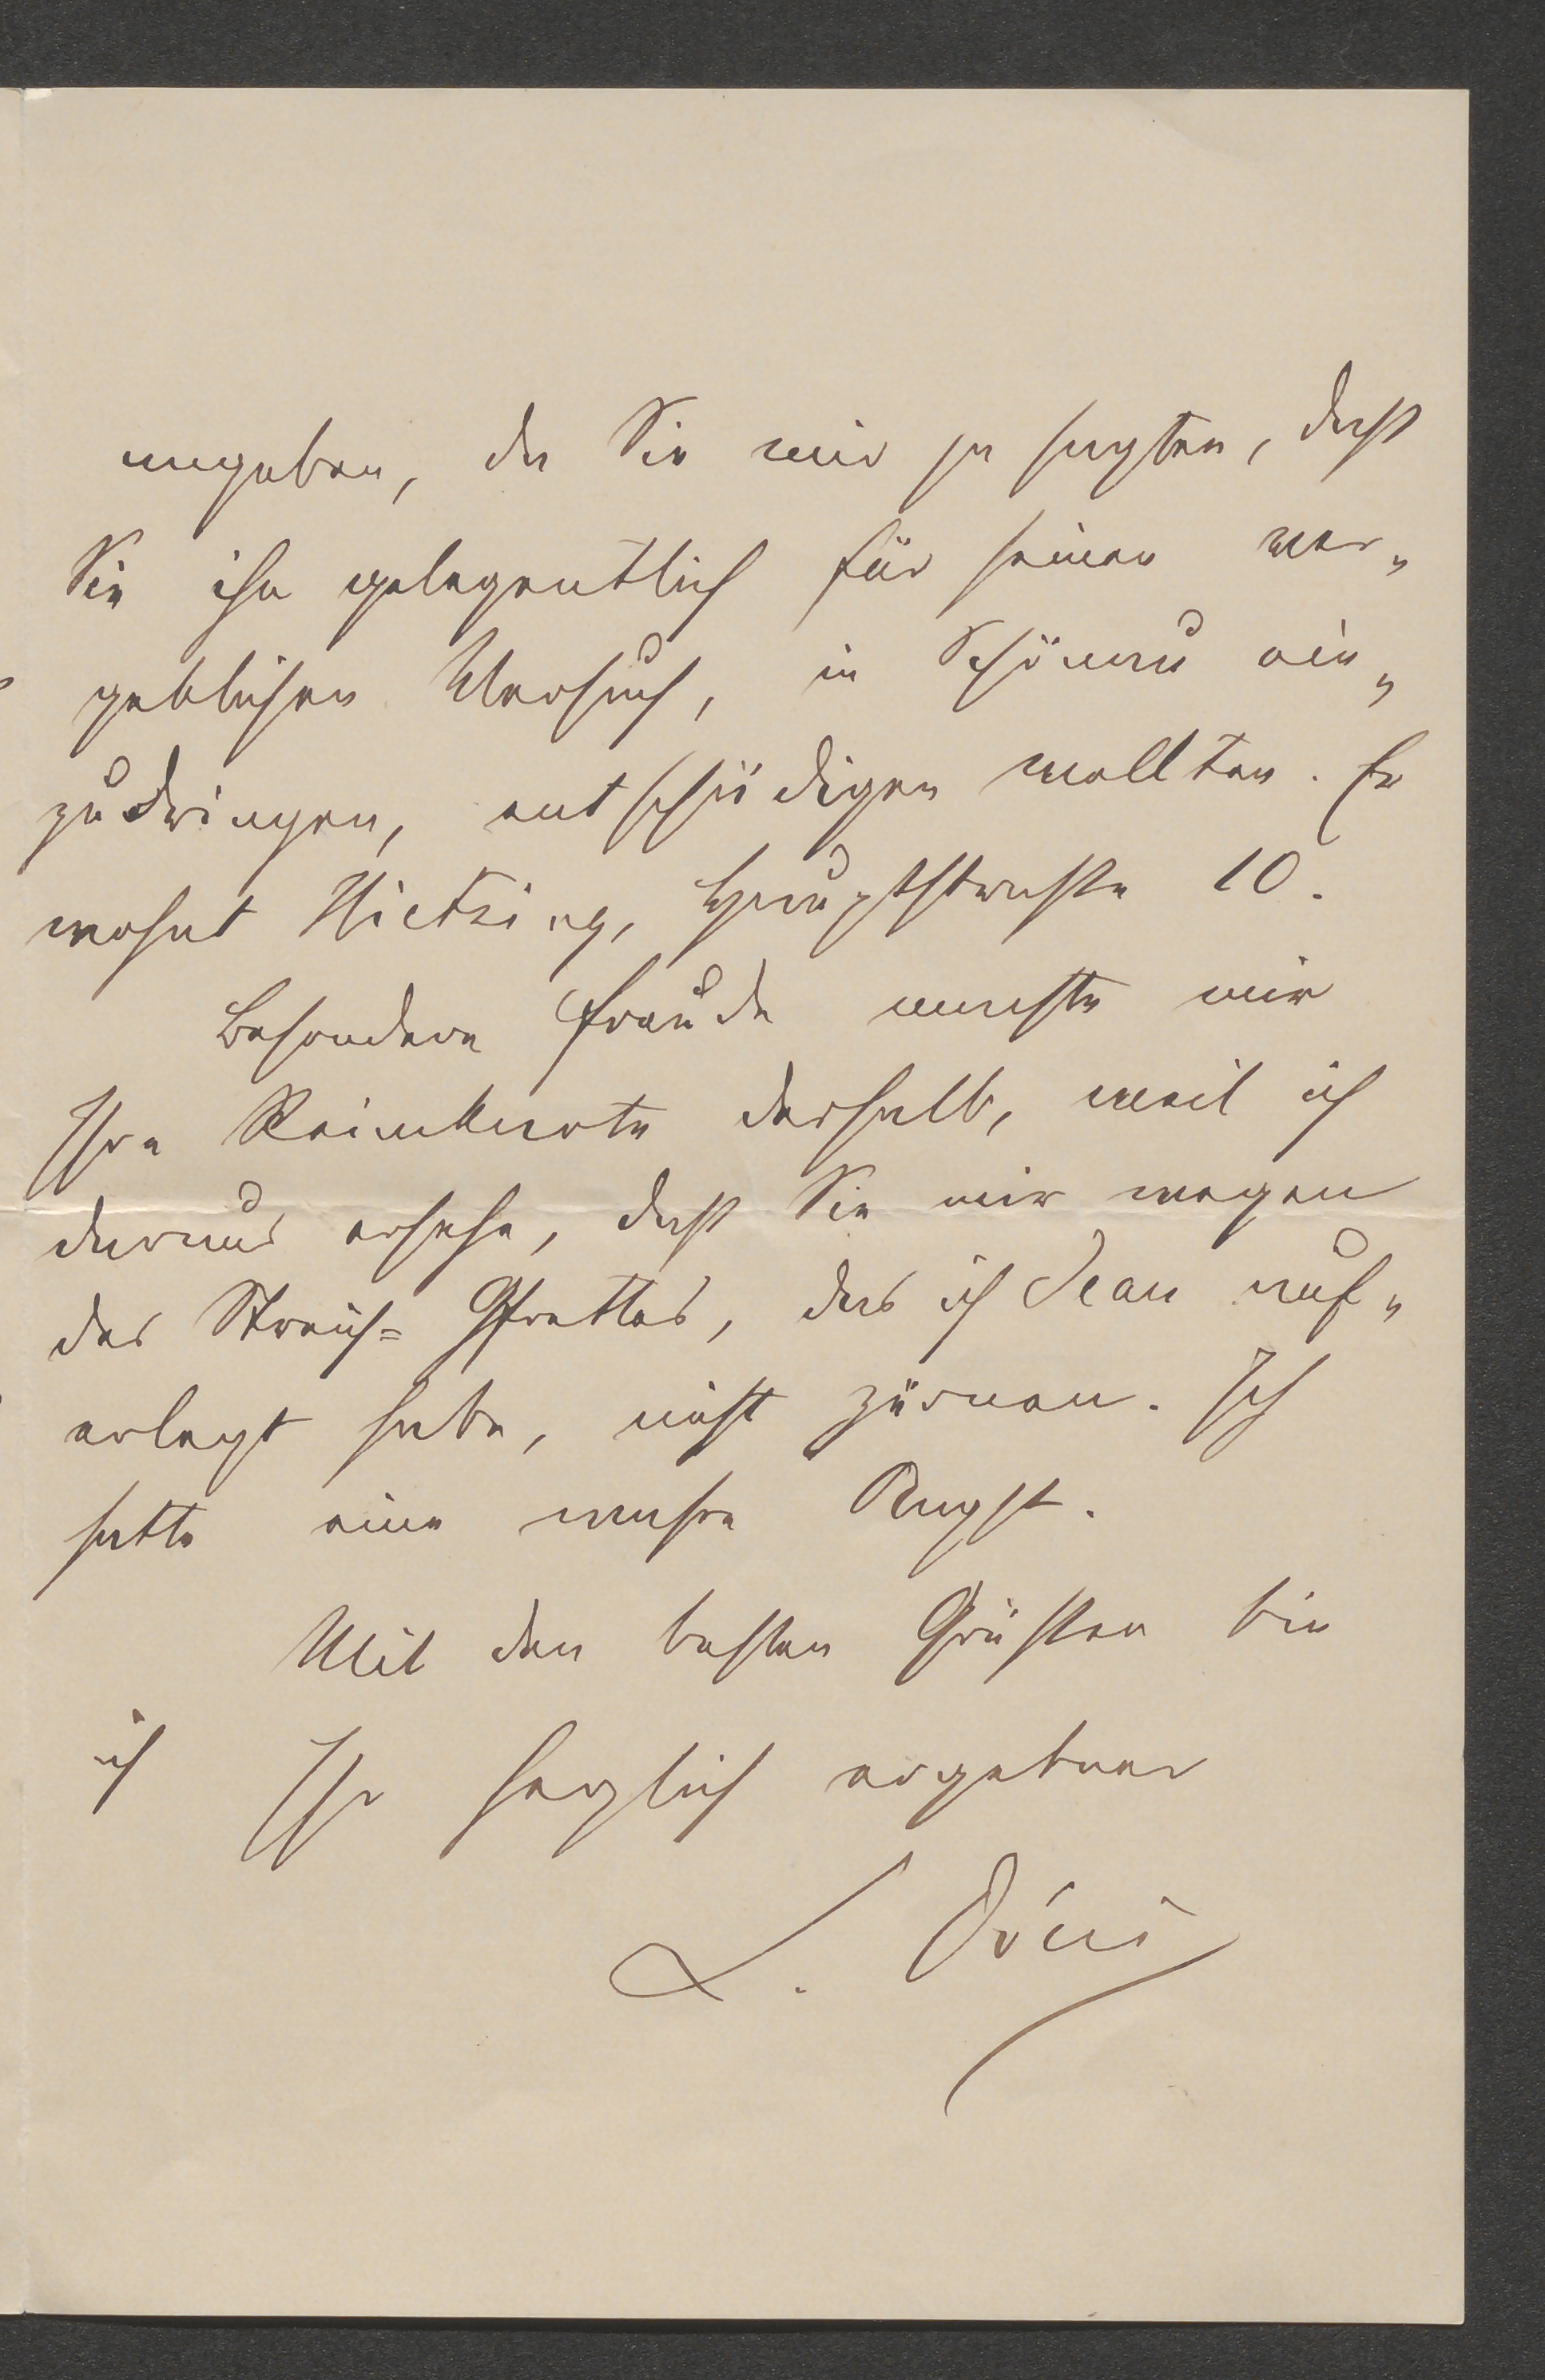 angeben, da Sie mir ja sagten, daß
Sie ihn gelegentlich für seinen ver„
geblichen Versuch, in Schönau ein„
zudringen, entschädigen wollten. Er
wohnt Hietzing, Hauptstraße 10.
Besondere Freude machte mir
Ihre Reimkarte deshalb, weil ich
daraus ersehe, daß Sie mir wegen
des Strauß= Gfrettes, das ich Jean auf„
erlegt habe, nicht zürnen. Ich
hatte eine wahre Angst.
Mit den besten Grüßen bin
ich Ihr herzlich ergebner
L. Dóczi